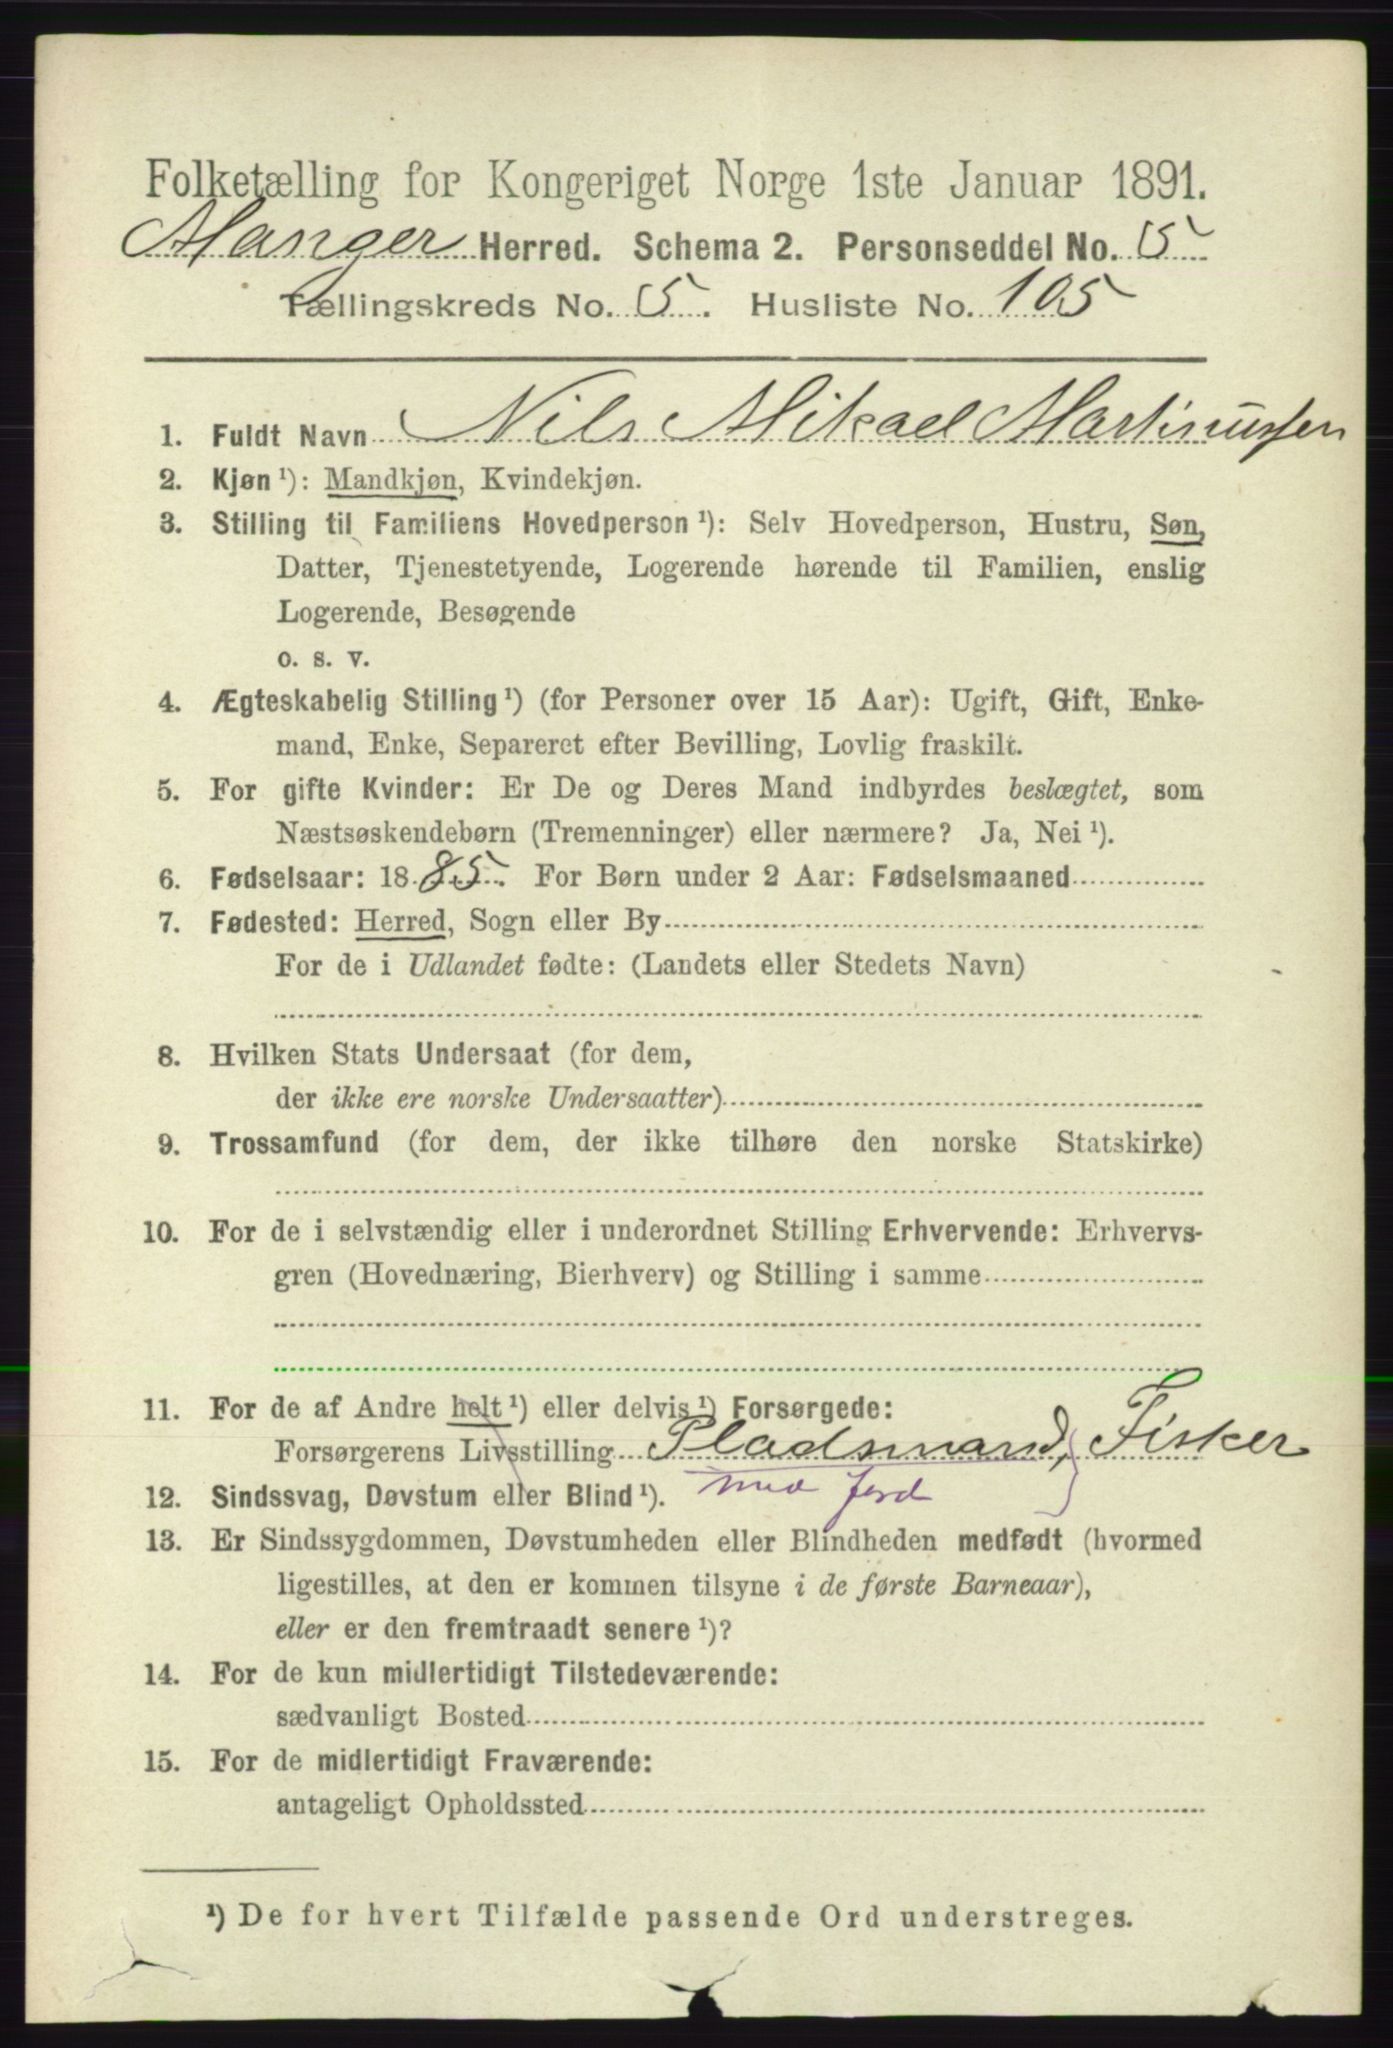 Folketælling for Kongeriget Norge 1ste Januar 1891.
Manger Herred. Schema 2. Personseddel No. 5
Tællingskreds No. 5. Husliste No. 105
1. Fuldt Navn Nils Mikael Martinussen
2. Kjøn ¹): Mandkjøn, Kvindekjøn.
3. Stilling til Familiens Hovedperson ¹): Selv Hovedperson, Hustru, Søn,
Datter, Tjenestetyende, Logerende hørende til Familien, enslig
Logerende, Besøgende
o. s. v.
4. Ægteskabelig Stilling ¹) (for Personer over 15 Aar): Ugift, Gift, Enke-
mand, Enke, Separeret efter Bevilling, Lovlig fraskilt.
5. For gifte Kvinder: Er De og Deres Mand indbyrdes beslægtet, som
Næstsøskendebørn (Tremenninger) eller nærmere? Ja, Nei ¹).
6. Fødselsaar: 1885. For Børn under 2 Aar: Fødselsmaaned
7. Fødested: Herred, Sogn eller By
For de i Udlandet fødte: (Landets eller Stedets Navn)
8. Hvilken Stats Undersaat (for dem,
der ikke ere norske Undersaatter)
9. Trossamfund (for dem, der ikke tilhøre den norske Statskirke)
10. For de i selvstændig eller i underordnet Stilling Erhvervende: Erhvervs-
gren (Hovednæring, Bierhverv) og Stilling i samme
11. For de af Andre helt ¹) eller delvis ¹) Forsørgede:
Forsørgerens Livsstilling Pladsmand, Fisker
med jord
12. Sindssvag, Døvstum eller Blind ¹).
13. Er Sindssygdommen, Døvstumheden eller Blindheden medfødt (hvormed
ligestilles, at den er kommen tilsyne i de første Barneaar),
eller er den fremtraadt senere ¹)?
14. For de kun midlertidigt Tilstedeværende:
sædvanligt Bosted
15. For de midlertidigt Fraværende:
antageligt Opholdssted
¹) De for hvert Tilfælde passende Ord understreges.